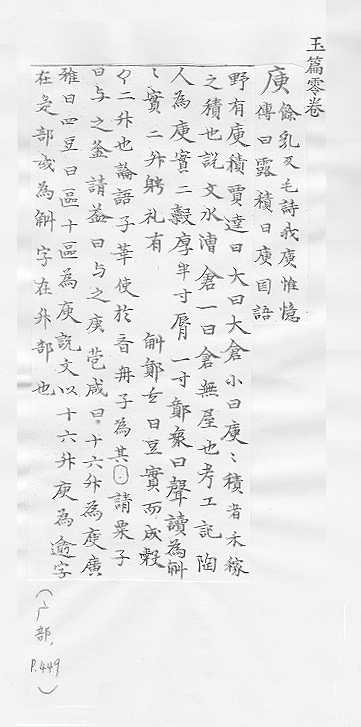 玉篇零卷
庾 餘乳反毛詩我庾惟憶
傳曰露積曰庾国語
野有庾積賈逵曰大曰大倉小曰庾〻積者禾稼
之積也説文水漕倉一曰倉無屋也考工記陶
人為庾實二觳厚半寸脣一寸鄭衆曰聲讀為斞
〻實二升聘礼有 斞鄭玄曰豆實而成觳
〻二升也論語子華使於斉冉子為其 請粟子
曰与之釜請益曰与之庾苞咸曰十六升為庾廣
雅曰四豆曰區十區為庾説文以十六升庾為逾字
在辵部或為斞字在升部也
(广部, P.449)